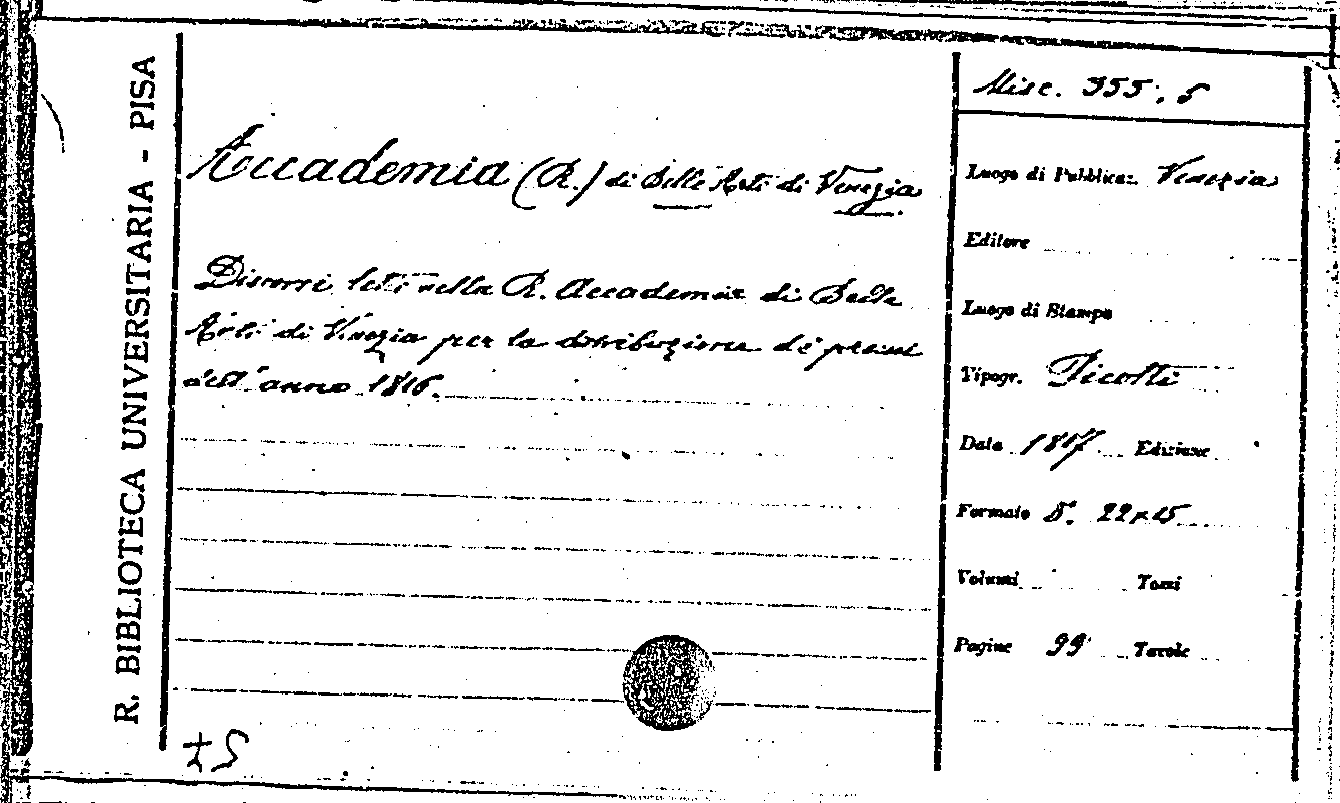 R. BIBLIOTECA UNIVERSITARIA - PISA
Misc. 355, 5
Accademia (R.) di Belle Arti di Venezia
Discorsi letti nella R. Accademia di Belle
Arti di Venezia per la distribuzione de' premi
dell'anno 1816.
Luogo di Pubblicaz. Venezia
Editore
Luogo di Stampa
Tipogr. Picotti
Data 1817 Edizione
Formato 8°. 22x15
Volumi Tomi
Pagine 99 Tavole